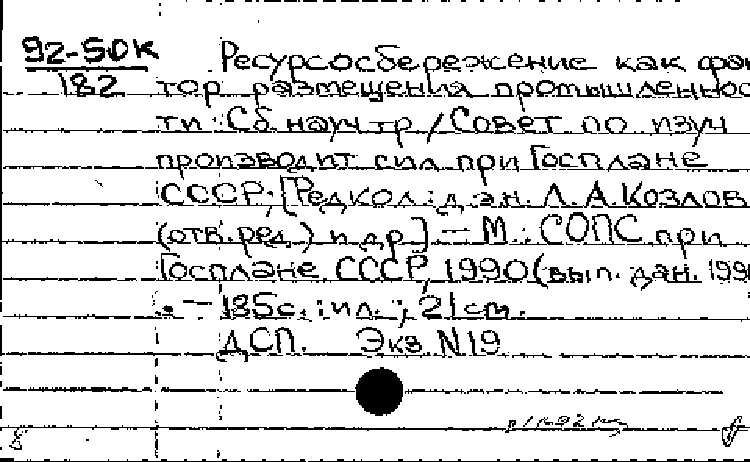 92-50к
182
Ресурсосбережение как фак
тор размещения промышленнос
ти : Сб. науч. тр. / Совет по изуч.
производит. сил при Госплане
СССР; [Редкол.: д.э.н. Л. А. Козлов
(отв. ред.) и др.]. — М.: СОПС при
Госплане СССР, 1990 (вып. дан. 1991
. — 185с. : ил. ; 21 см.
ДСП. Экз. N19
8